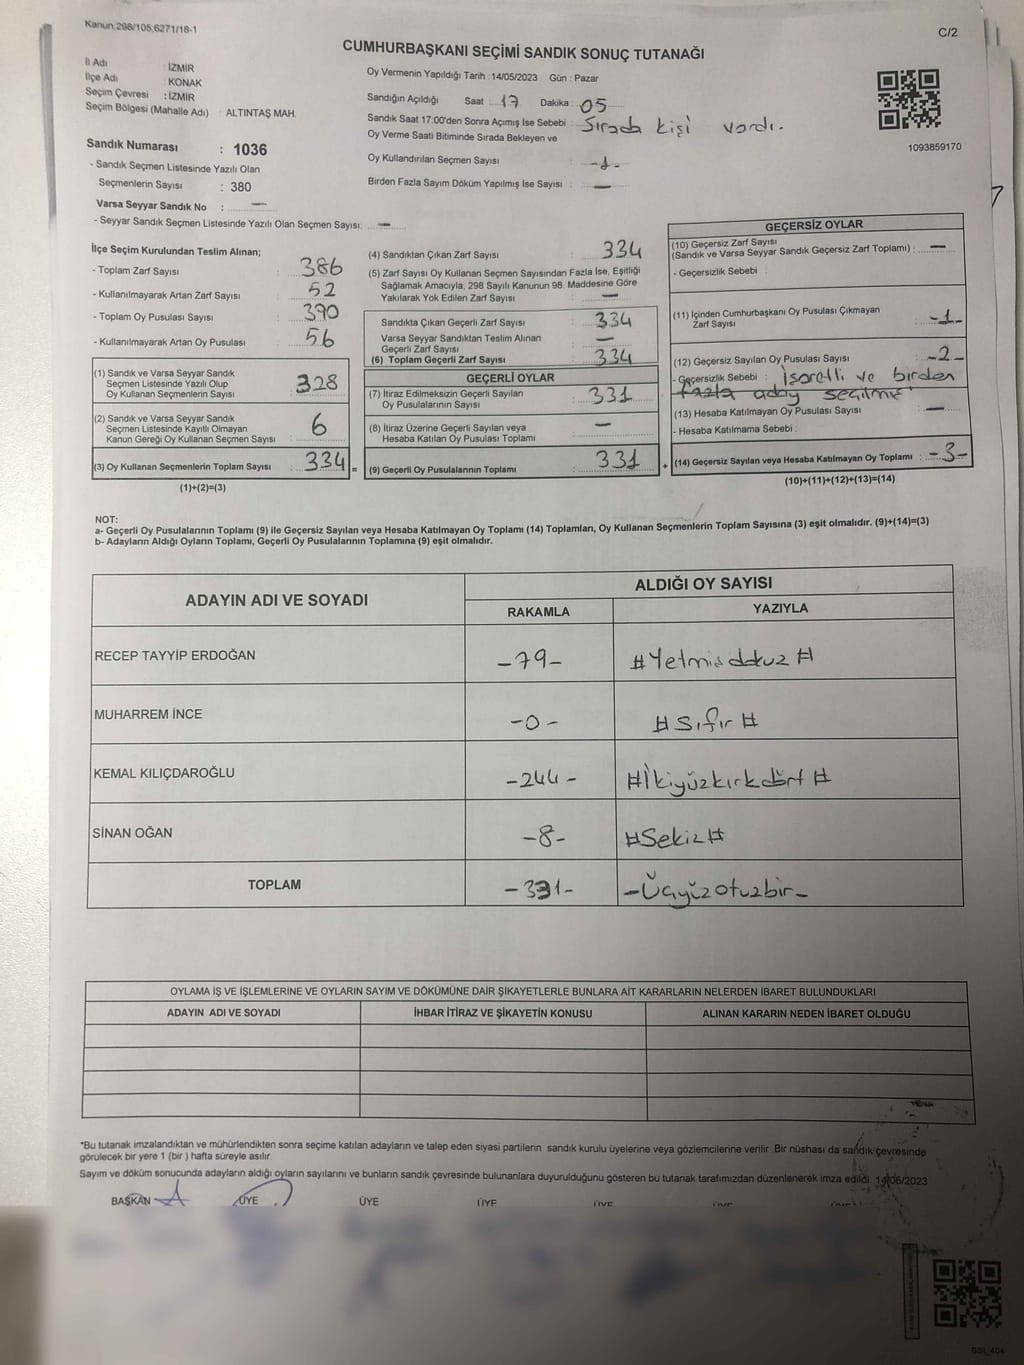 Kanun:298/105,6271/18-1
C/2
CUMHURBAŞKANI SEÇİMİ SANDIK SONUÇ TUTANAĞI
İl Adı : İZMİR
İlçe Adı : KONAK
Seçim Çevresi : İZMİR
Seçim Bölgesi (Mahalle Adı) : ALTINTAŞ MAH.
Sandık Numarası : 1036
- Sandık Seçmen Listesinde Yazılı Olan
Seçmenlerin Sayısı : 380
Varsa Seyyar Sandık No : —
- Seyyar Sandık Seçmen Listesinde Yazılı Olan Seçmen Sayısı: —
Oy Vermenin Yapıldığı Tarih :14/05/2023 Gün : Pazar
Sandığın Açıldığı Saat 17 Dakika : 05
Sandık Saat 17:00'den Sonra Açımış İse Sebebi : Sırada kişi vardı.
Oy Verme Saati Bitiminde Sırada Bekleyen ve
Oy Kullandırılan Seçmen Sayısı : -1-
Birden Fazla Sayım Döküm Yapılmış İse Sayısı : —
1093859170
İlçe Seçim Kurulundan Teslim Alınan;
- Toplam Zarf Sayısı : 386
- Kullanılmayarak Artan Zarf Sayısı : 52
- Toplam Oy Pusulası Sayısı : 390
- Kullanılmayarak Artan Oy Pusulası : 56
(1) Sandık ve Varsa Seyyar Sandık
Seçmen Listesinde Yazılı Olup
Oy Kullanan Seçmenlerin Sayısı : 328
(2) Sandık ve Varsa Seyyar Sandık
Seçmen Listesinde Kayıtlı Olmayan
Kanun Gereği Oy Kullanan Seçmen Sayısı : 6
(3) Oy Kullanan Seçmenlerin Toplam Sayısı : 334 =
(1)+(2)=(3)
(4) Sandıktan Çıkan Zarf Sayısı : 334
(5) Zarf Sayısı Oy Kullanan Seçmen Sayısından Fazla İse, Eşitliği
Sağlamak Amacıyla; 298 Sayılı Kanunun 98. Maddesine Göre
Yakılarak Yok Edilen Zarf Sayısı : —
Sandıkta Çıkan Geçerli Zarf Sayısı : 334
Varsa Seyyar Sandıktan Teslim Alınan
Geçerli Zarf Sayısı : —
(6) Toplam Geçerli Zarf Sayısı : 334
GEÇERLİ OYLAR
(7) İtiraz Edilmeksizin Geçerli Sayılan
Oy Pusulalarının Sayısı : 331
(8) İtiraz Üzerine Geçerli Sayılan veya
Hesaba Katılan Oy Pusulası Toplamı : —
(9) Geçerli Oy Pusulalarının Toplamı : 331 +
GEÇERSİZ OYLAR
(10) Geçersiz Zarf Sayısı
(Sandık ve Varsa Seyyar Sandık Geçersiz Zarf Toplamı) : —
- Geçersizlik Sebebi :
(11) İçinden Cumhurbaşkanı Oy Pusulası Çıkmayan
Zarf Sayısı : -1-
(12) Geçersiz Sayılan Oy Pusulası Sayısı : -2-
- Geçersizlik Sebebi : İşaretli ve birden
fazla aday seçilmiş
(13) Hesaba Katılmayan Oy Pusulası Sayısı : —
- Hesaba Katılmama Sebebi :
(14) Geçersiz Sayılan veya Hesaba Katılmayan Oy Toplamı : -3-
(10)+(11)+(12)+(13)=(14)
NOT:
a- Geçerli Oy Pusulalarının Toplamı (9) ile Geçersiz Sayılan veya Hesaba Katılmayan Oy Toplamı (14) Toplamları, Oy Kullanan Seçmenlerin Toplam Sayısına (3) eşit olmalıdır. (9)+(14)=(3)
b- Adayların Aldığı Oyların Toplamı, Geçerli Oy Pusulalarının Toplamına (9) eşit olmalıdır.
ADAYIN ADI VE SOYADI
ALDIĞI OY SAYISI
RAKAMLA YAZIYLA
RECEP TAYYİP ERDOĞAN -79- #Yetmişdokuz#
MUHARREM İNCE -0- #Sıfır#
KEMAL KILIÇDAROĞLU -244- #İkiyüzkırkdört#
SİNAN OĞAN -8- #Sekiz#
TOPLAM -331- -Üçyüzotuzbir-
OYLAMA İŞ VE İŞLEMLERİNE VE OYLARIN SAYIM VE DÖKÜMÜNE DAİR ŞİKAYETLERLE BUNLARA AİT KARARLARIN NELERDEN İBARET BULUNDUKLARI
ADAYIN ADI VE SOYADI İHBAR İTİRAZ VE ŞİKAYETİN KONUSU ALINAN KARARIN NEDEN İBARET OLDUĞU
*Bu tutanak imzalandıktan ve mühürlendikten sonra seçime katılan adayların ve talep eden siyasi partilerin sandık kurulu üyelerine veya gözlemcilerine verilir. Bir nüshası da sandık çevresinde
görülecek bir yere 1 (bir ) hafta süreyle asılır.
Sayım ve döküm sonucunda adayların aldığı oyların sayılarını ve bunların sandık çevresinde bulunanlara duyurulduğunu gösteren bu tutanak tarafımızdan düzenlenerek imza edildi. 14/05/2023
BAŞKAN ÜYE ÜYE ÜYE ÜYE ÜYE